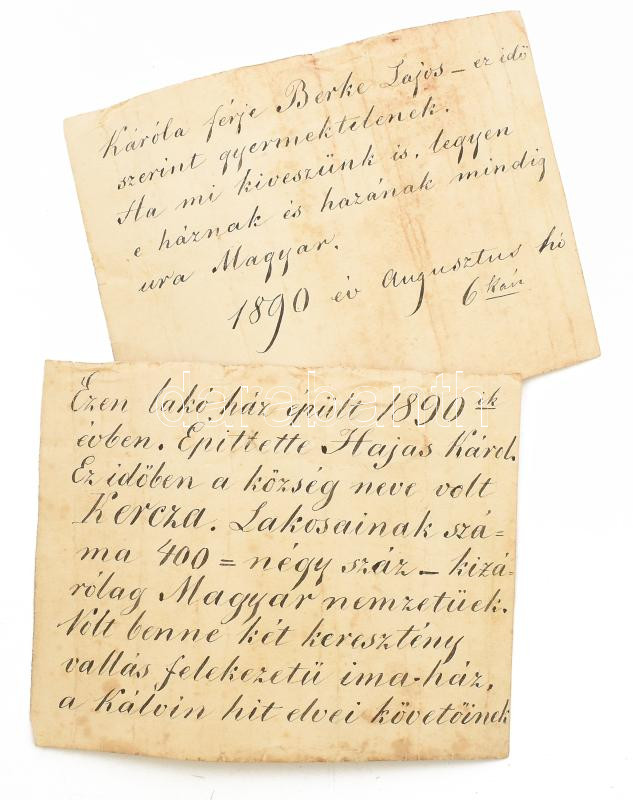 Káróla férje Berke Lajos – ez idő
szerint gyermektelenek.
Ha mi kiveszünk is, legyen
e háznak és hazának mindig
ura Magyar.
1890 év Augusztus hó
6 kán
Ezen lakó ház épült 1890 ik
évben. Epittette Hajas Károl.
Ez időben a község neve volt
Kercza. Lakosainak szá=
ma 400 = négy száz – kizá=
rólag Magyar nemzetüek.
Volt benne két keresztény
vallás felekezetü ima-ház,
a Kálvin hit elvei követőinek
darabanth